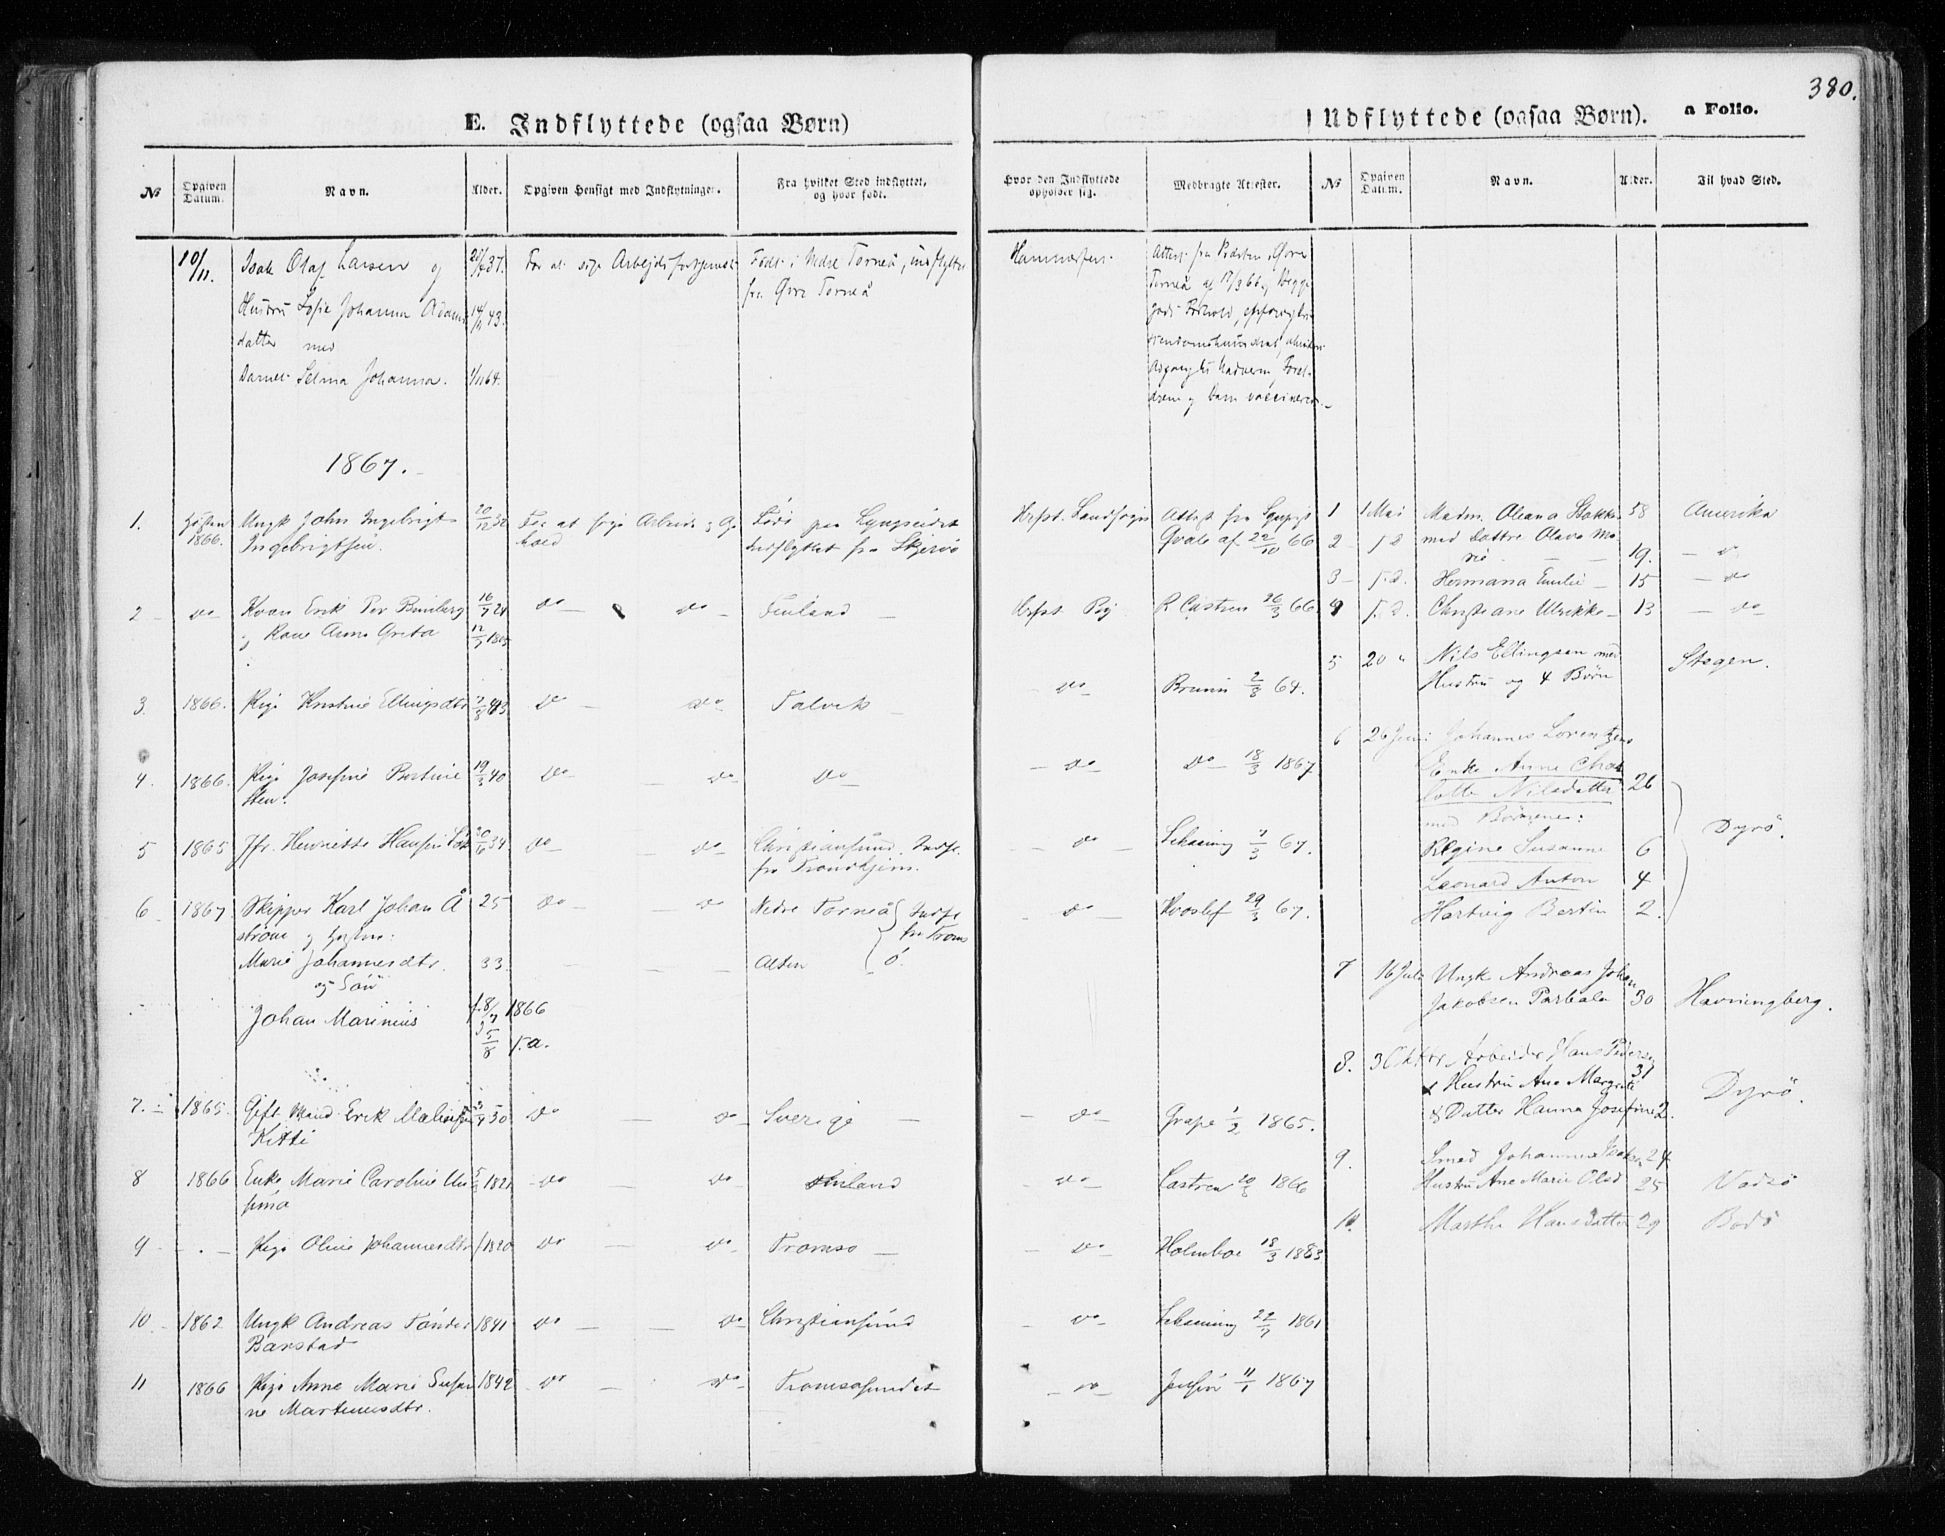 380.
E. Indflyttede (ogsaa Børn)
Udflyttede (ogsaa Børn).
a Folio.
No
Opgiven Datum.
Navn.
Alder.
Opgiven Hensigt med Indflytningen.
Fra hvilket Sted indflyttet, og hvor født.
Hvor den Indflyttede opholder sig.
Medbragte Attester.
No
Opgiven Datum.
Navn.
Alder.
Til hvad Sted.
10/11.
Isak Olaf Larsen og
Hustru Sofie Johanna Adams
datter med
Barnet Selma Johanna.
14/1 43.
1/11 64.
For at søge Arbejdsfortjeneste
Født i Nedre Torneå, indflyttet
fra Øvre Torneå
Hammerfest
Attest fra Præsten i Øvre
Torneå af 17/3 66
1867.
1.
Høsten
1866.
Ungk John Ingebrigt
Ingebrigtsen.
20/12 32
For at søge Arbeide og Op
hold
Født paa Lyngseidet
Indflyttet fra Skjervø
Hrfst. Landsogn
Attest fra Sgpr
Qvale af 22/10 66
2 do
Kvæn Erik Per Bruiberg
og Kone Anna Greta
16/7 21
12/7 1805
do do
Finland
Hrfst. By
P. Castren 26/3 66
3. 1866.
Pige Kristine Ellingsdtr
do do
Talvik
do
Bruun 2/3 64.
4. 1866.
Pige Josefine Bertine
Sten.
19/3 40
do do
do
do
do 18/3 1867
5 1865
Jfr. Henriette Hansine
34
do do
Christiansund. Indfl.
fra Trondhjem.
do
67.
6 1867
Skipper Karl Johan Å
strøm og Hustru:
Marie Johannesdtr.
og Søn
Johan Marinius
25
33.
f. 8/7 1866
5/8 s.a.
do do
Nedre Torneå
Alten
Indfl
fra Troms
ö.
do
Hvoslef 29/3 67.
7. 1865.
Gift Mand Erik
Kitti
30
do do
Sverige
do
Grape 1/2 1865.
8 1866
Enke Marie Caroline
1821
do do
Finland
do
Castren 20/3 1866
9
Pige Oline Johannesdtr
1820
do do
Tromsø
do
Holmboe 18/3 1883
10 1862
Ungk Andreas Tønder
Barstad
1841
do do
Christiansund
do
22/7 1861
11 1866
Pige Anne Marie Susan
ne Martinusdtr.
1842
do do
Tromsøsundet
do
Jensen 11/1 1867
1 1 Mai Madm. Oleana Stokke 58 Amerika
2 s.d. med Døttre Olava Ma
rie 19. do
3 s.d. Hermana Emilie 15 do
4 s.d. Christiane Ulrikke 13 do
5 20 " Nils Ellingsen med
Hustru og 4 Børn
Stegen.
6 26 Juni Johannes Lorentzens
Enke Anne Char
lotte Nilsdatter 26
med Børnene:
Regine Susanne 6
Leonard Anton 4
Hartvig Bertin 2.
Dyrø.
7 16 Juli Ungk Andreas Johan
Jakobsen Parbala 30 Havningberg.
8. 3 Oktbr Arbeider Hans Peders
Hustru Ane Margrete 31
& Datter Hanna Josefine 2.
Dyrø.
9. Smed Johannes Isaksen 24
Hustru Ane Marie Olsd 25 Vadsö
10. Marthe Hansdatter 29 Bodö